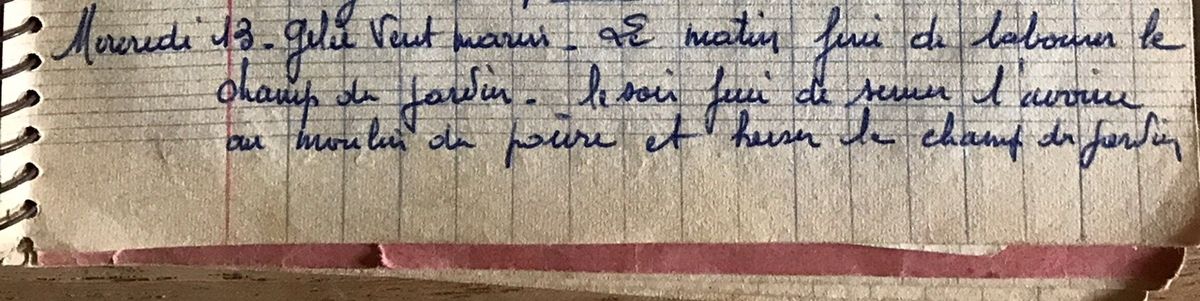 Mercredi 13 - Gelée Vent marin - Le matin fini de labourer le
champ du jardin - le soir fini de semer l'avoine
au moulin du et herser le champ du jardin